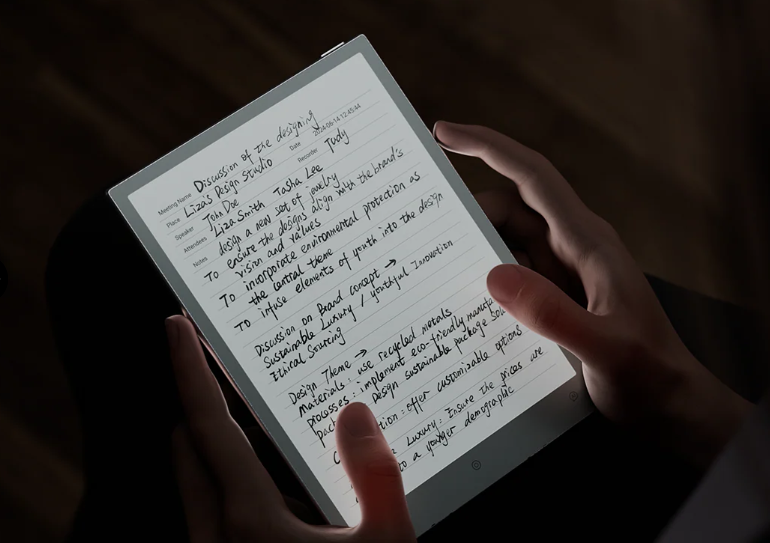 Meeting Name Discussion of the designing
Place Liza's Design Studio Date 2024-06-14 12:45:44
Speaker John Doe Recorder Judy
Attendees Liza Smith Tasha Lee
Notes design a new set of jewelry
To ensure the designs align with the brand's
vision and values
To incorporate environmental protection as
the central theme
To infuse elements of youth into the design
Discussion on Brand concept →
Sustainable Luxury / youthful Innovation
Ethical Sourcing
Design Theme →
Materials: use recycled metals
processes: implement eco-friendly
Design sustainable package
: offer customizable options
Luxury: Ensure the prices are
to a younger demographic